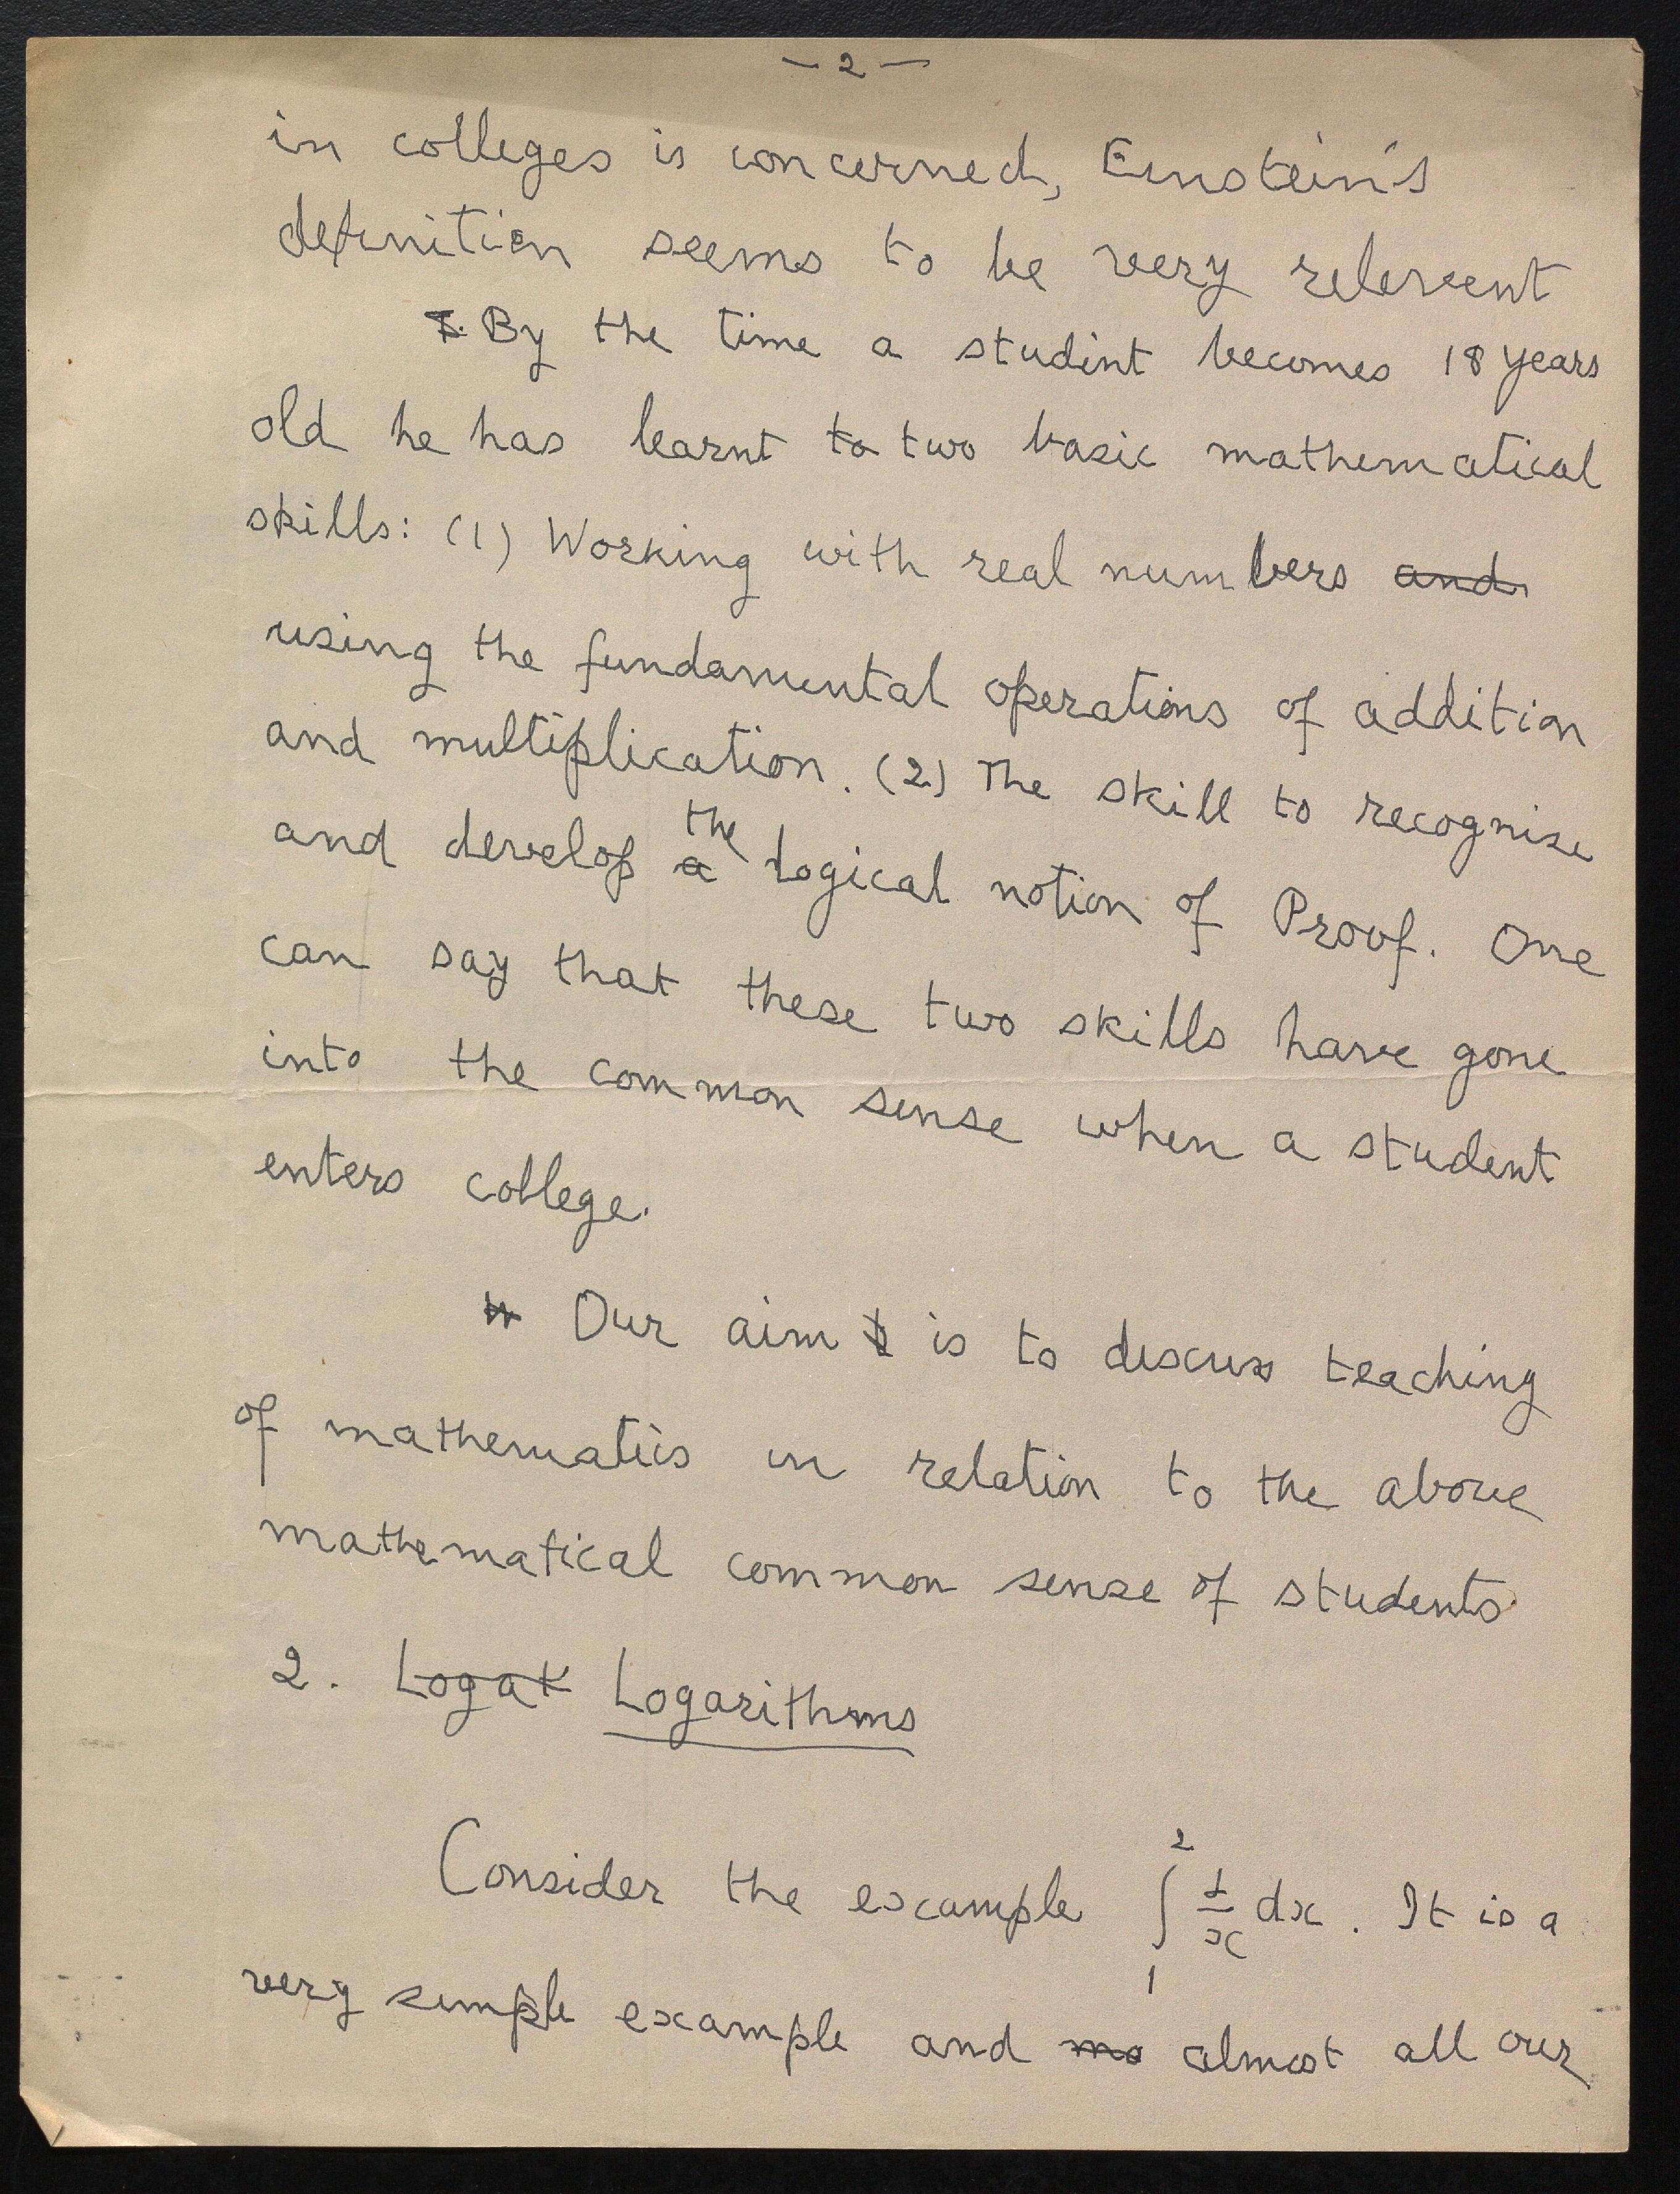 - 2 -
in colleges is concerned, Einstein's
definition seems to be very relevent
By the time a student becomes 18 years
old he has learnt to two basic mathematical
skills: (1) Working with real numbers and
using the fundamental operations of addition
and multiplication. (2) The skill to recognise
and develop a the Logical notion of Proof. One
can say that these two skills have gone
into the common sense when a student
enters college.
Our aim is to discuss teaching
of mathematics in relation to the above
mathematical common sense of students.
2. Logat Logarithms
Consider the example ∫₁² 1/x dx. It is a
very simple example and mo almost all our